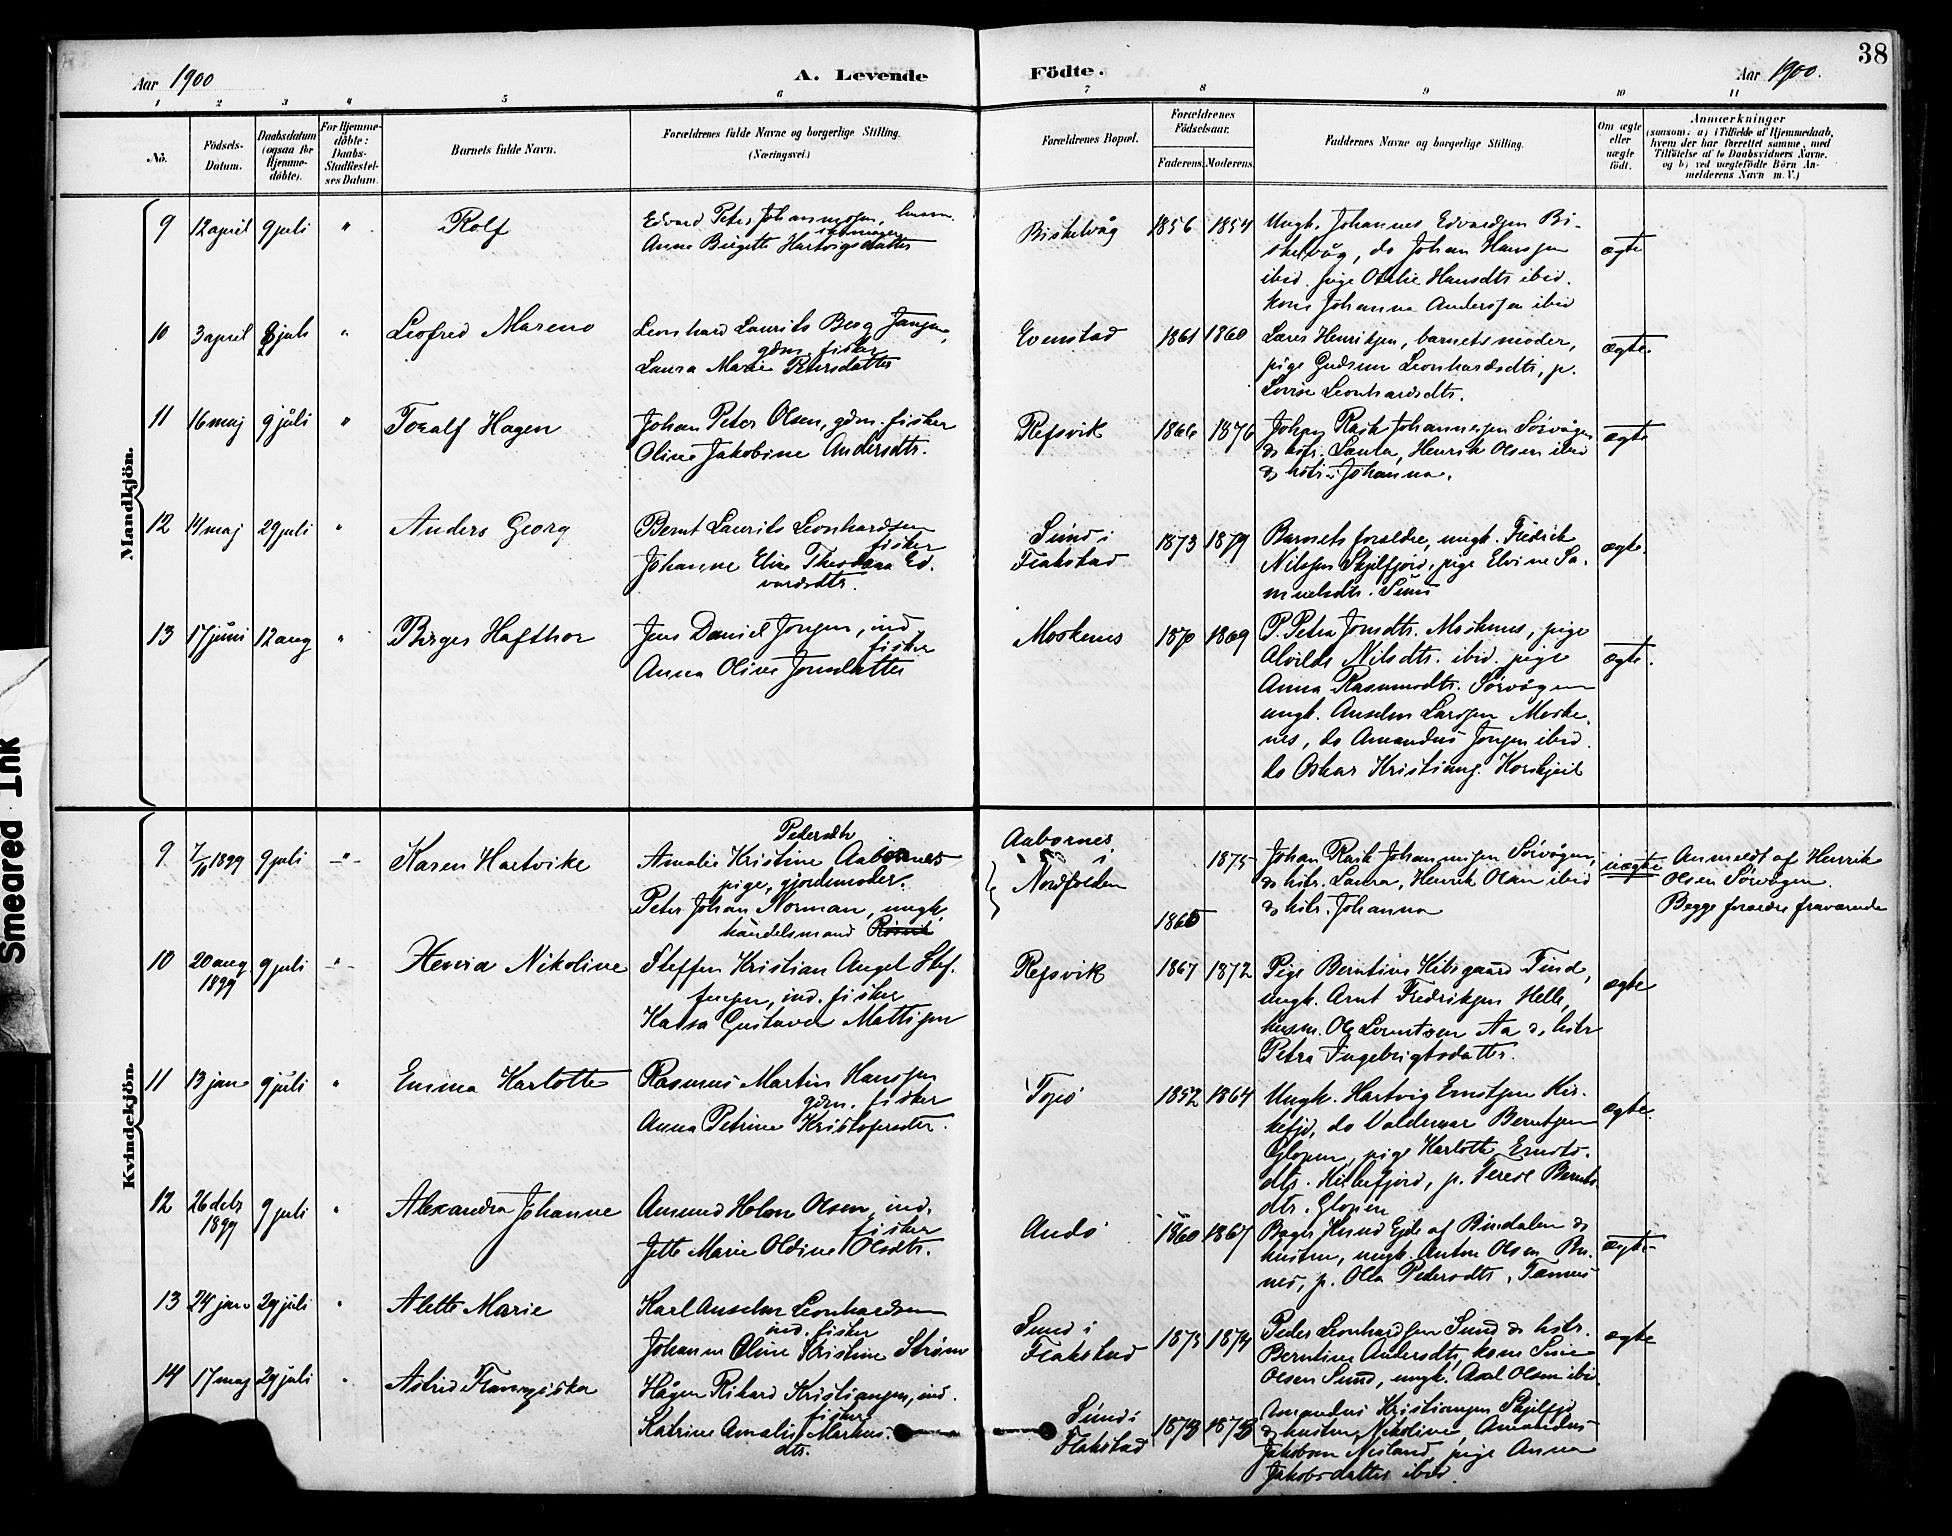 38
Aar 1900
A. Levende
Födte.
Aar 1900.
1 2 3 4 5 6 7 8 9 10 11
No.
Födsels-
Datum.
Daabsdatum
(ogsaa for
Hjemme-
döbte).
For Hjemme-
döbte:
Daabs-
Stadfæstel-
ses Datum.
Barnets fulde Navn.
Forældrenes fulde Navne og borgerlige Stilling.
(Næringsvei.)
Forældrenes Bopæl.
Forældrenes
Födselsaar.
Faderens. Moderens.
Faddernes Navne og borgerlige Stilling.
Om ægte
eller
uægte
födt.
Anmærkninger
(saasom: a) i Tilfælde af Hjemmedaab,
hvem der har forrettet samme, med
Tilföielse af to Daabsvidners Navne.
og b) ved uægtefödte Börn An-
melderens Navn m. V.)
Mandkjön.
9 12 april 9 juli " Rolf
Edvard Peter Johannessen, husm.
Anne Birgitte Hartvigsdatter
Biskelvåg 1856 1854
Ungk. Johannes Edvardsen Bi-
skelvåg, do Johan Hanssen
ibid. pige Otilie Hansdtr ibid.
kone Johanna Anderssen ibid
ægte
10 3 april juli " Leofred Mareno
Leonhard Laurits Berg Jansen,
gdm. fisker
Laura Marie Pedersdatter
Evenstad 1861 1860
Lars Henriksen, barnets moder,
pige Gudrun Leonhardsdtr, p.
Lovise Leonhardsdtr.
ægte.
11 16 maj 9 juli " Toralf Hagen
Johan Peter Olsen, gdm. fisker
Oline Jakobine Andersdtr.
Refsvik 1866 1876
Johan Rask Johannesen Sörvågen
& hstr. Laura, Henrik Olsen ibid
& hstr. Johanna.
ægte
12 14 maj 29 juli " Anders Georg
Bernt Laurits Leonhardsen
fisker
Johanne Elise Theodora Ed-
vardsdtr.
Sund i
Flakstad
1873 1879
Barnets forældre, ungk. Fredrik
Nilssen Skjelfjord, pige Elvine Sa-
muelsdtr. Sund
ægte.
13 17 juni 12 aug " Birger Hafthor
Jens Daniel Jonsen, ind
fisker
Anna Oline Jonsdatter
Moskenes 1870 1869
P. Petra Jonsdtr. Moskenes, pige
Alvilde Nilsdtr. ibid. pige
Anna Rasmusdtr. Sörvågen
ungk. Anselm Larssen Moske-
nes, do Amandus Jonsen ibid.
do Oskar Kristians.
ægte.
Kvindekjön.
9 1899 9 juli -"- Karen Hartvike
Pedersdtr
Amalie Kristine Aabornes
pige, gjordemoder.
Peter Johan Norman, ungk.
handelsmand
Aabornes,
i
Nordfolden
1875
1865
Johan Rask Johannessen Sörvågen,
& hstr. Laura, Henrik Olsen ibid
& hstr. Johanna
uægte
Anmeldt af Henrik
Olsen Sörvågen.
Begge forældre fraværende
10 20 aug 1899 9 juli -"- Henria Nikoline
Steffen Kristian Angel Stef-
fensen, ind. fisker
Gustava Mattisen
Refsvik 1867 1872
Pige Berntine Kibsgaard Tind,
ungk. Arnt Fredriksen Helle,
husm. Ole Lorentzen Aa & hstr
Petra Ingebrigtsdatter.
ægte
11 13 jan 9 juli " Emma Karlotte
Rasmus Martin Hanssen
gdm. fisker
Anna Petrine Kristofersdtr.
Topö 1852 1864
Ungk. Hartvig Ernstsen Kir-
kefjd, do Valdemar Berntsen
Glopen, pige Karlotte Ernsts-
dtr. Kirkefjord, p. Serese Bernts-
dtr. Glopen
ægte.
12 26 debr 1899 9 juli " Alexandra Johanne
Amund Holm Olsen, ind.
fisker
Jette Marie Oldine Olsdtr.
Andö 1860 1867
Bager Knud Eide af Bindalen &
hustru, ungk. Anton Olsen Bu-
nes, p. Olea Pedersdtr, Tennes
ægte.
13 24 jan 29 juli " Alette Marie
Karl Anselm Leonhardsen
ind. fisker
Johanna Oline Kristine Ström
Sund i
Flakstad
1873 1874
Peder Leonhardsen Sund & hstr.
Berntine Andersdtr, kone Sine
Olsen Sund, ungk. Axel Olsen ibid.
ægte
14 17 maj 29 juli " Astrid Franziska
Hågen Rikard Kristiansen, ind.
fisker
Katrine Amalie Markus-
dtr.
Sund i
Flakstad
1873 1873
Amandus Kristiansen Skjelfjd
& hustru Nikoline, Amandus
Jakobsen Nesland, pige Anna
Jakobsdatter ibid.
Smeared Ink